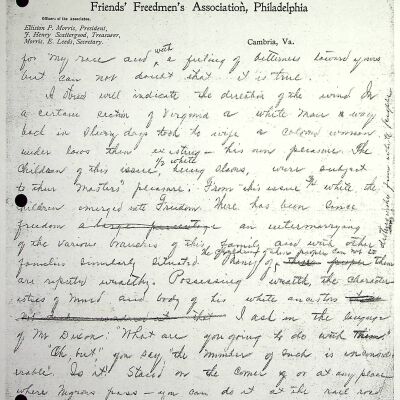 Friends' Freedmen's Association, Philadelphia
Officers of the Association.
Elliston P. Morris, President,
J. Henry Scattergood, Treasurer,
Morris, E. Leeds, Secretary.
Cambria, Va.
for my race and with a feeling of bitterness toward yours
but can not doubt that it is true.
A straw will indicate the direction of the wind. In
a certain section of Virginia a white man
back in slavery days took to wife a colored woman
under laws then existing – his own pleasure. The
children of this issue, 1/2 white being slaves, were subject
to their masters' pleasure. From this issue 3/4 white, the
children emerged into Freedom. There has been since
freedom a large percentage an intermarrying
of the various branches of this family and with other
families similarly situated. Many of these people them
are reputed wealthy. Possessing wealth, the character
istics of mind and body of his white ancestors
I ask in the language
of Mr Dixon: "What are you going to do with them."
"Oh, but" you say, "the number of such is inconsid
erable". Is it? Stand on the corner of or at any place
where Negroes pass – you can do it at the rail road